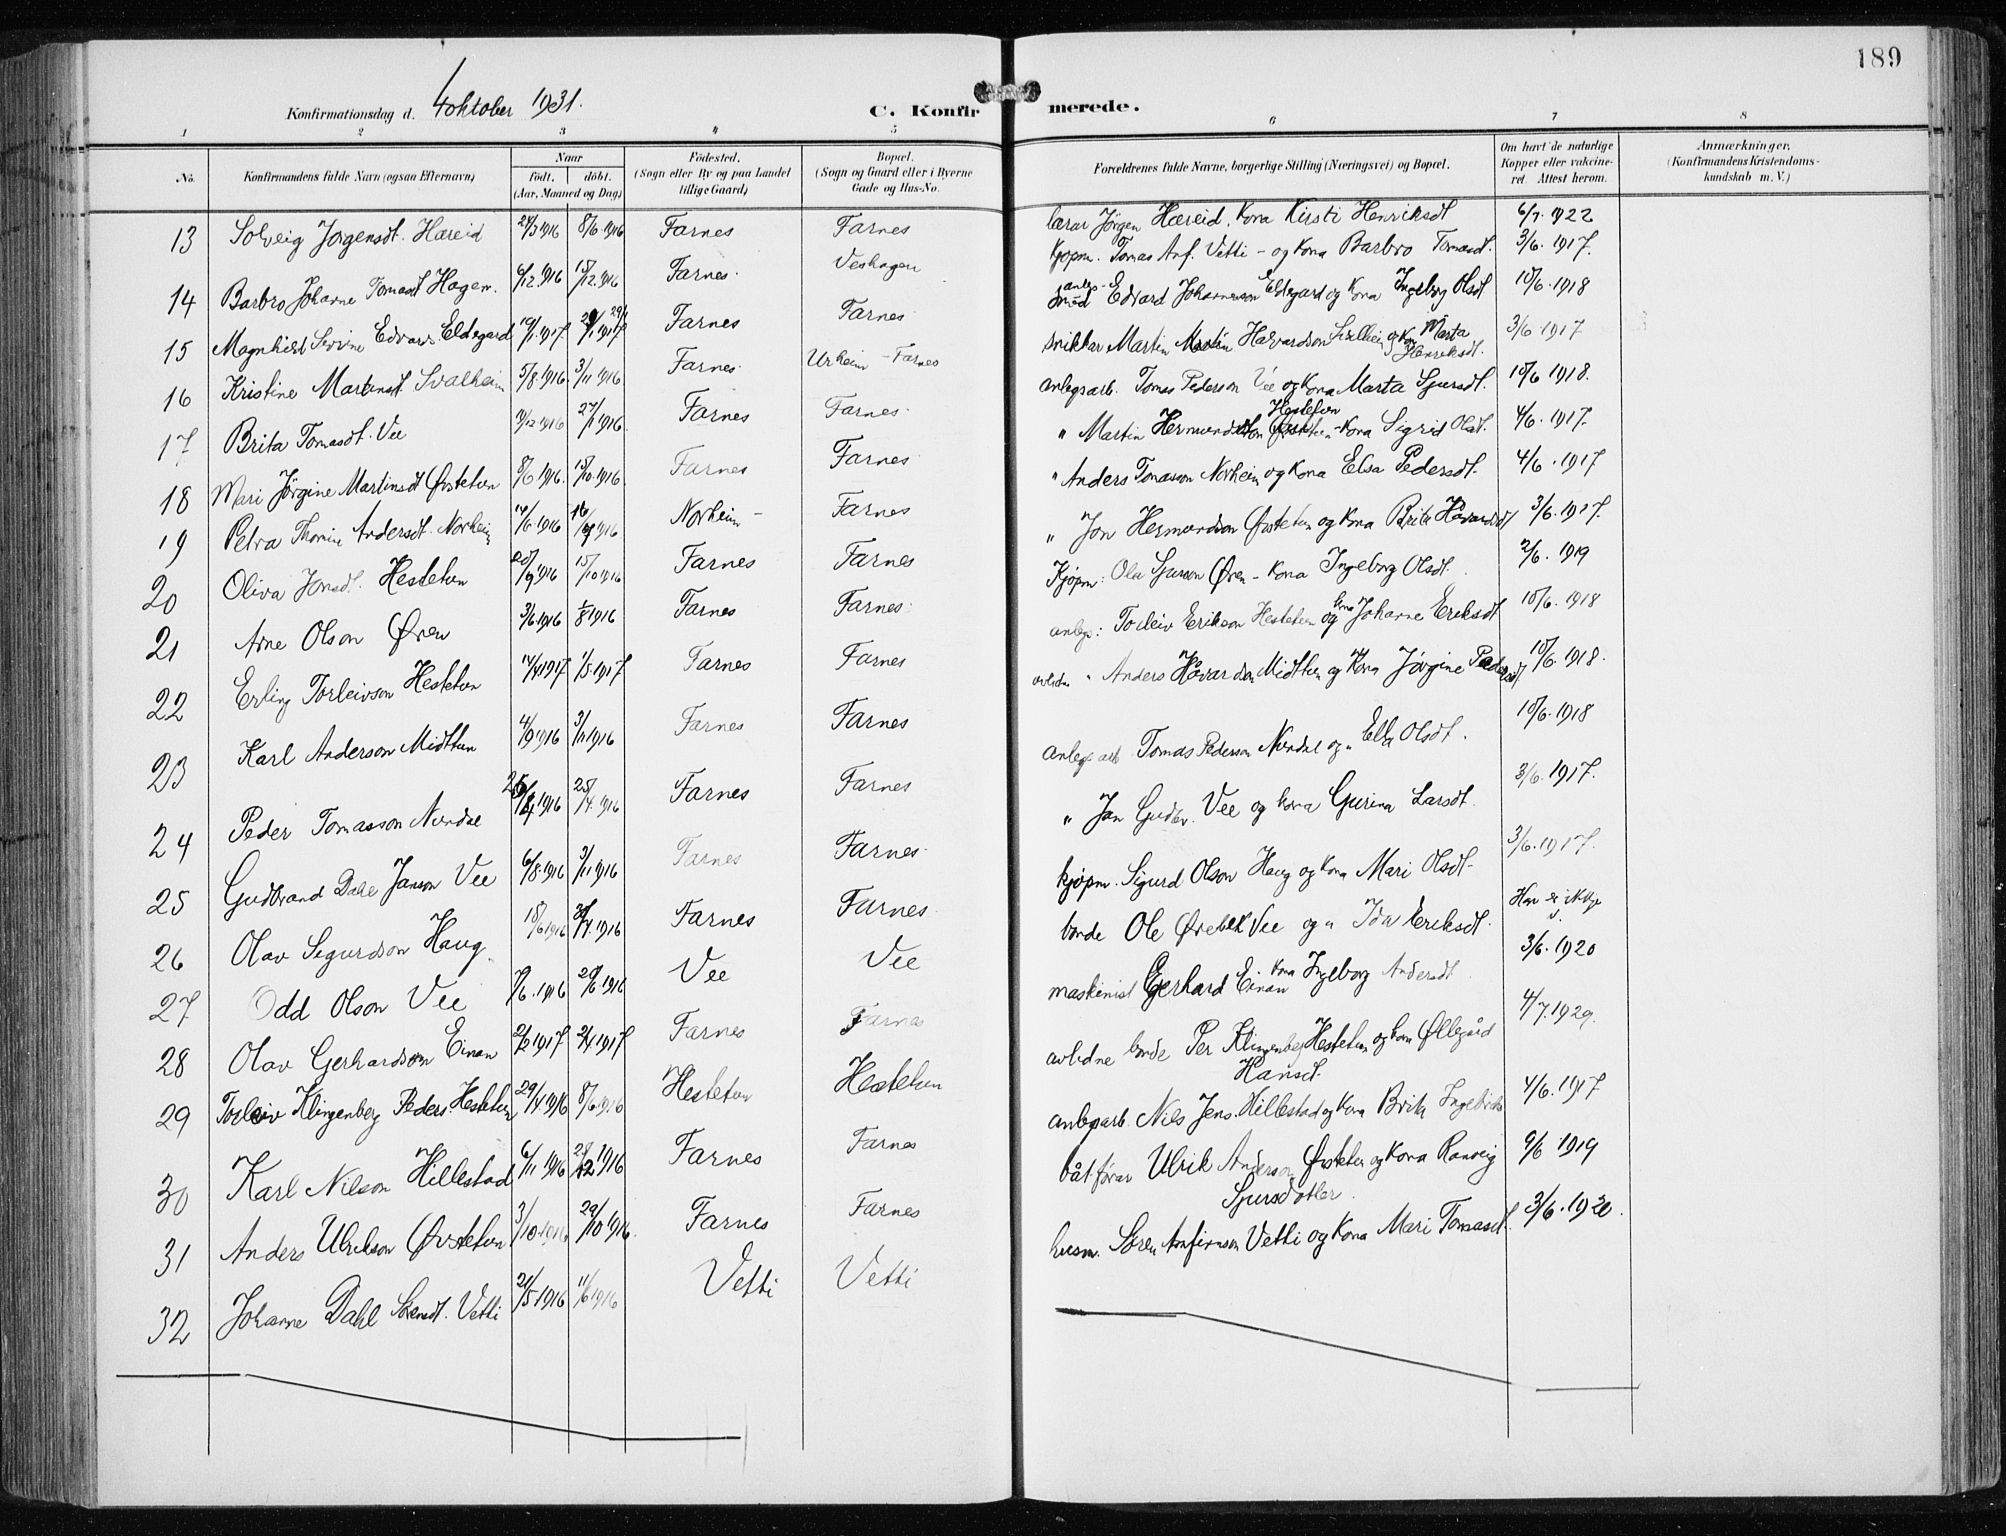 189
Konfirmationsdag d. 4 oktober 1931.
C. Konfirmerede.
1 2 3 4 5 6 7 8
No. Konfirmandens fulde Navn (ogsaa Efternavn) Naar født, døbt. (Aar, Maaned og Dag) Fødested. (Sogn eller By og paa Landet tillige Gaard) Bopæl. (Sogn og Gaard eller i Byerne Gade og Hus-No. Forældrenes fulde Navne, borgerlige Stilling (Næringsvei) og Bopæl. Om havt de naturlige Kopper eller vakcineret. Attest herom. Anmærkninger. (Konfirmandens Kristendomskundskab m. V.)
13 Solveig Jørgensdt. Hæreid 8/6 1916 Farnes Farnes lærar Jørgen Hæreid. Kona Kirsti Henriksdt 6/7. 1922
14 Barbro Johanne Tomasdt Hagen. 6/12 1916 15/12 1916 Farnes Veshagen Kjøpm. Tomas Anf. Vetti - og kona Barbro Tomasdt. 3/6. 1917.
15 Magnhild Sevrine Edvards Eldegard 19/1. 1917. Farnes Farnes anlegs- smed Edvard Johannesson Eldegard og kona Ingeborg Olsdt 10/6. 1918
16 Kristine Martinsdt Svalheim 5/8. 1916. 3/11 1916 Farnes Urheim - Farnes snikkar Martin Martin Halvardson Svalheim og kona Marta Henriksdt. 3/6 1917
17 Brita Tomasdt. Vee 27/1 1916. Farnes Farnes anlegsarb. Tomas Pederson Vee og kona Marta Sjursdt. 10/6 1918.
18 Mari Jørgine Martinsdt Øvstetun 8/6 1916. 15/10. 1916. Farnes Farnes " Martin Hermundson Hestetun - kona Sigrid Olsdt. 4/6. 1917.
19 Petra Thomine Andersdt. Norheim Norheim - Farnes " Anders Tomasson Norheim og kona Elsa Pedersdt. 4/6. 1917
20 Oliva Jonsdt. Hestetun 15/10 1916 Farnes Farnes " Jon Hermundson Øvstetun og kona Brita Håvardsdt 3/6. 1917.
21 Arne Olson Øren 3/6 1916 1/8 1916 Farnes Farnes Kjøpm: Ola Sjurson Øren - kona Ingeborg Olsdt. 2/6. 1919
22 Erling Torleivson Hestetun 14/4 1917 1/5 1917 Farnes Farnes anlegs: Torleiv Erikson Hestetun og kona Johanne Eriksdt 10/6. 1918
23 Karl Anderson Midttun 4/9 1916 3/11 1916 Farnes Farnes avlidne " Anders Håvardson Midttun og kona Jørgine Pedersdt 10/6. 1918.
24 Peder Tomasson Nundal 25/4. 1916 Farnes Farnes anlegs arb. Tomas Pederson Nundal og " Ella Olsdt. 10/6. 1918
25 Gudbrand Dahl Janson Vee 6/8. 1916 3/11 1916 Farnes Farnes " Jan Gudbr. Vee og kona Gurina Larsdt. 3/6. 1917.
26 Olav Sigurdson Haug Farnes Farnes kjøpm. Sigurd Olson Haug og kona Mari Olsdt 3/6. 1917.
27 Odd Olson Vee Vee Vee bonde Ole Ørebekk Vee og " Ida Eriksdt. Han er ikkje v.
28 Olav Gerhardson Einan 2/4 1917 Farnes Farnes maskinist Gerhard Einan kona Ingeborg Andersdt 3/6. 1920
29 Torleiv Klingenberg Peders Hestetun 29/4 1916 8/6 1916 Hestetun Hestetun avlidne bonde Per Klingenberg Hestetun og kona Øllegård Hansdt. 4/7. 1929.
30 Karl Nilson Hillestad 6/11 1916 Farnes Farnes anlegsarb. Nils Jens. Hillestad og kona Brita Ingebrikts 4/6. 1917
31 Anders Ulrikson Øvstetun 3/10. 1916 29/10 1916. Farnes Farnes båtførar Ulrik Anderson Øvstetun og kona Ranveig Sjursdotter. 9/6 1919
32 Johanne Dahl Sørensdt. Vetti 21/5 1916 11/6 1916 Vetti Vetti husm. Søren Arnfinnson Vetti og kona Mari Tomasdt. 3/6. 1920.